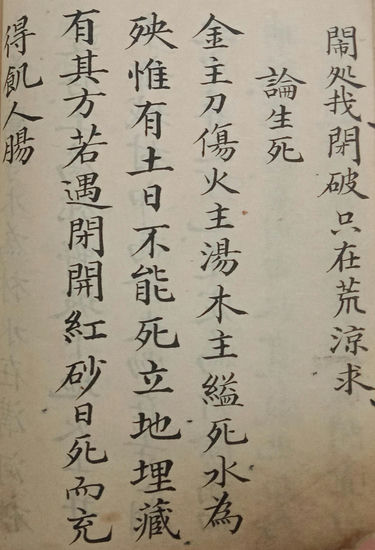 鬧处找閉破只在荒涼求
論生死
金主刀傷火主湯木主縊死水為
殃惟有土日不能死立地埋藏
有其方若遇閉開紅砂日死而充
得飢人腸